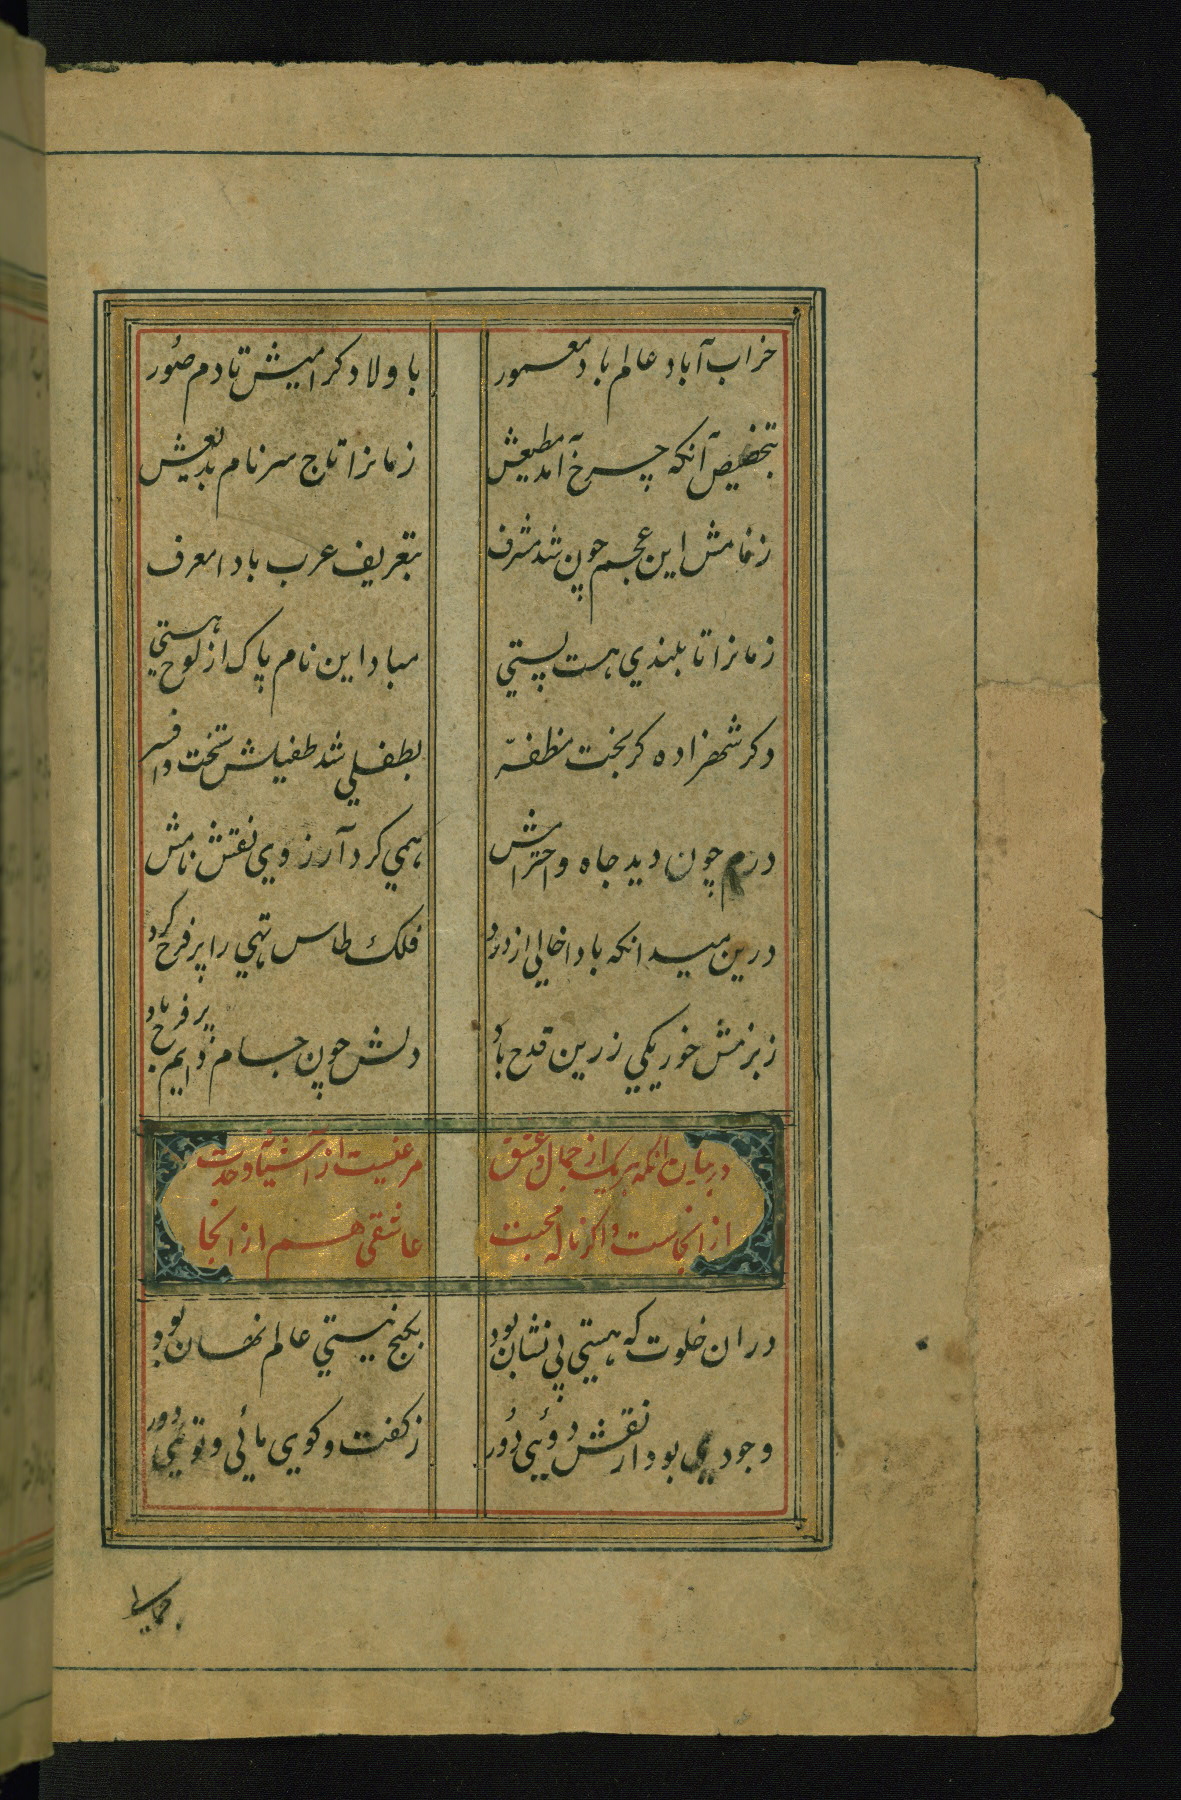 خراب آباد عالم باد معمور
باولاد کرامیش تا دم صُور
بتخصیص آنکه چرخ آمد مطیعش
زمانرا تاج سر نام بدیعش
ز نامش این عجم چون شد مشرف
بتعریف عرب بادا معرف
زمانرا تا بلندي هست پستي
مبادا این نام پاک از لوح هستي
دکر شهزاده کز بخت مظفّر
بطفلي شد طفیلش تخت و افسر
درم چون دید جاه و احترامش
همي کرد آرزوي نقش نامش
درین میدانکه بادا خالي از درد
فلک طاس تهي را پر فرح کرد
ز بزمش خور یکي زرین قدح باد
دلش چون جام دایم پر فرح باد
در بیان آنکه هر یک از جمال و عشق
مرغیست از آشیانه وحدت
از انجاست واکر ناله محبت
عاشقي هم از انجا
در ان خلوت که هستي بي نشان بود
بکنج نیستي عالم نهان بود
وجودي بود از نقش دوئي دُور
ز کفت و کوي مائي و توئي دور
جمالي